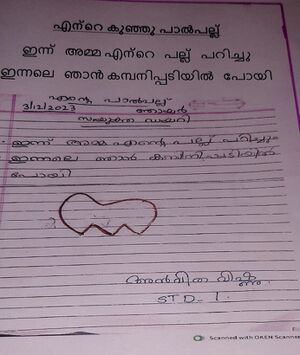 എന്റെ കുഞ്ഞു പാൽപല്ല്
ഇന്ന് അമ്മ എന്റെ പല്ല് പറിച്ചു
ഇന്നലെ ഞാൻ കമ്പനിപ്പടിയിൽ പോയി
എന്റെ പാൽപല്ല്
3/12/2023 ഞായർ
സംയുക്ത ഡയറി
ഇന്ന് അമ്മ എന്റെ പല്ല് പറിച്ചു
ഇന്നലെ ഞാൻ കമ്പനിപടിയിൽ
പോയി
അൻവിത വിഷ്ണു
STD - 1
Scanned with OKEN Scanner